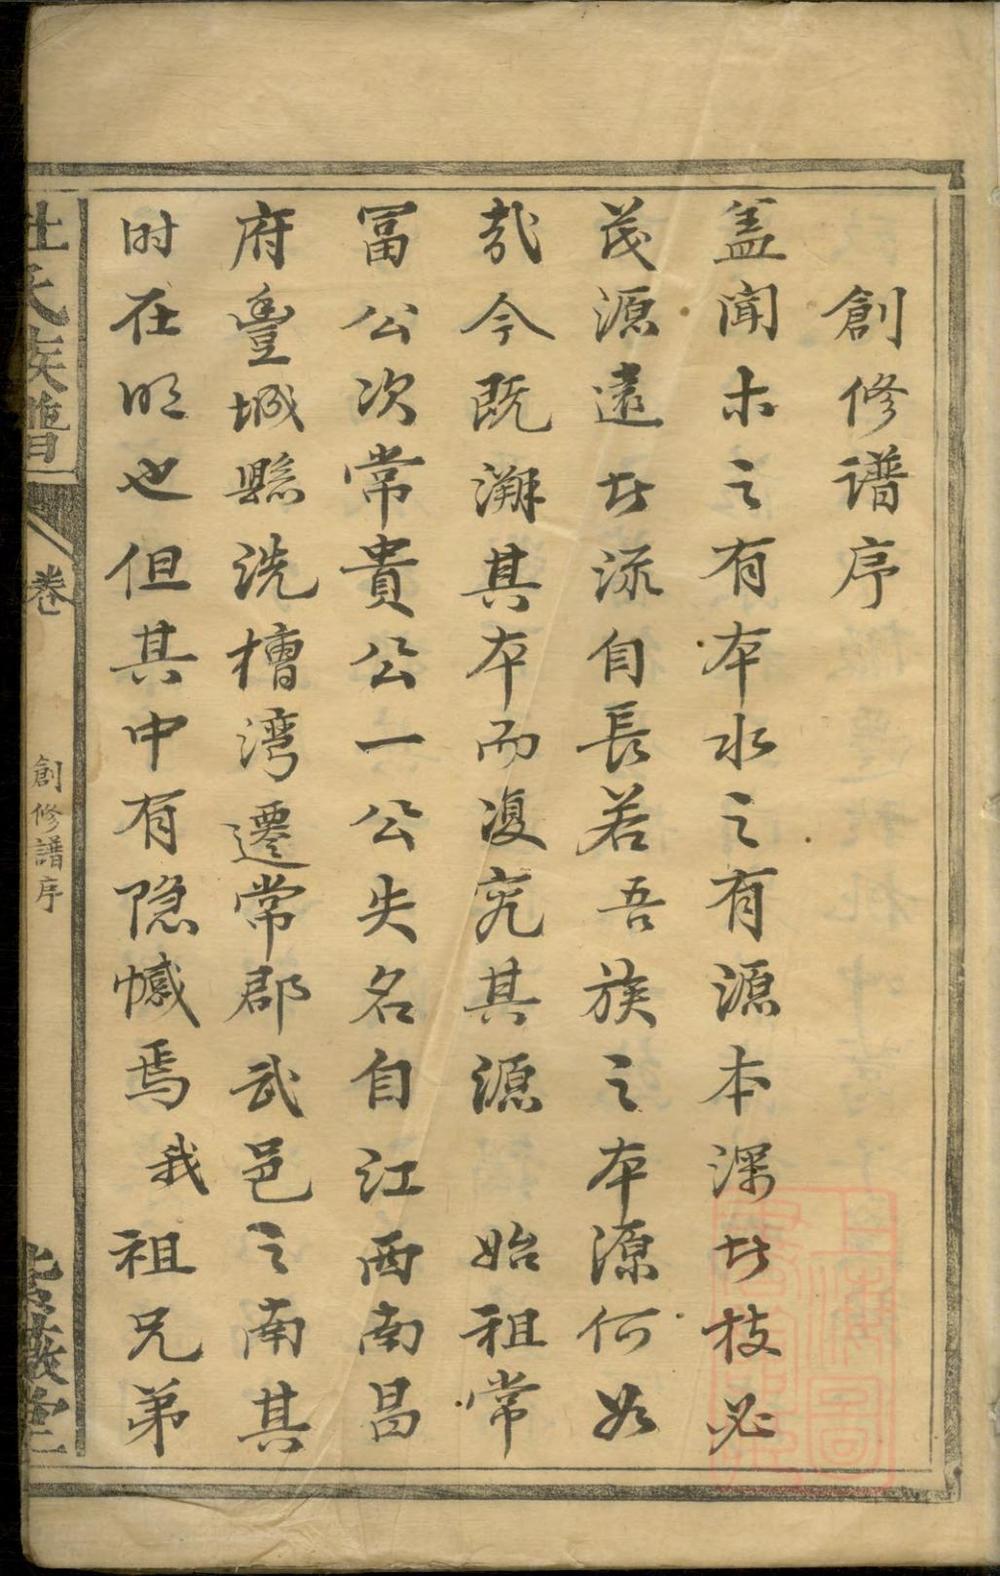 創修譜序
盖聞木之有本水之有源本深者枝必
茂源遠者流自長若吾族之本源何如
哉今既溯其本而復究其源 始祖常
冨公次常貴公一公失名自江西南昌
府豐城縣洗槽湾遷常郡武邑之南其
时在明也但其中有隐憾焉我祖兄弟
杜氏族譜
卷一
創修譜序